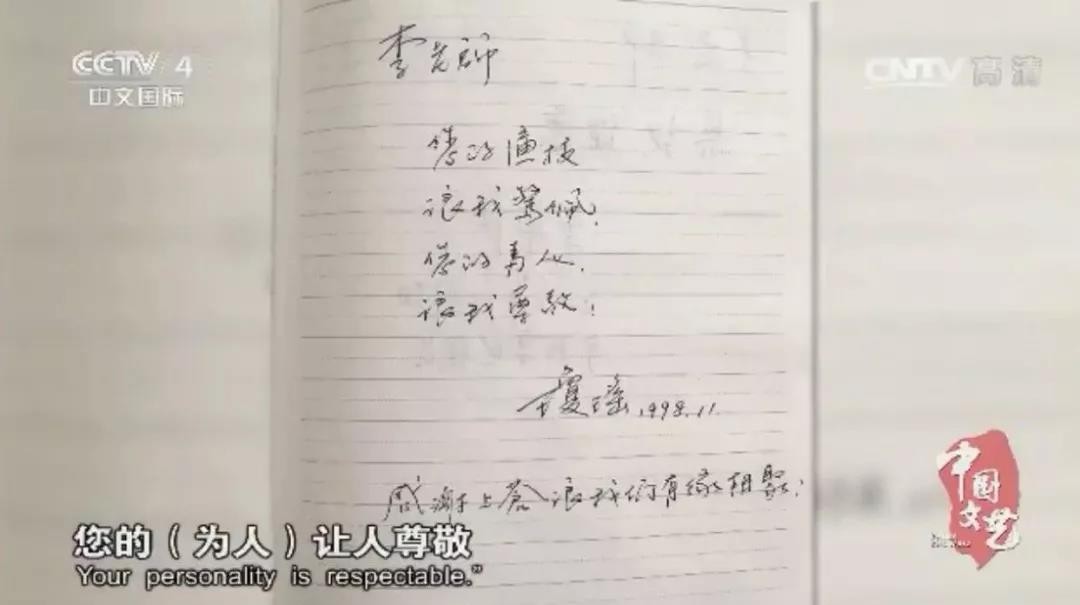 CCTV 4
中文国际
CNTV 高清
李老師
您的演技
讓我驚佩,
您的為人,
讓我尊敬!
瓊瑤 1998.11.
感謝上蒼讓我們有緣相聚!
中国文艺
您的（为人）让人尊敬
Your personality is respectable.”